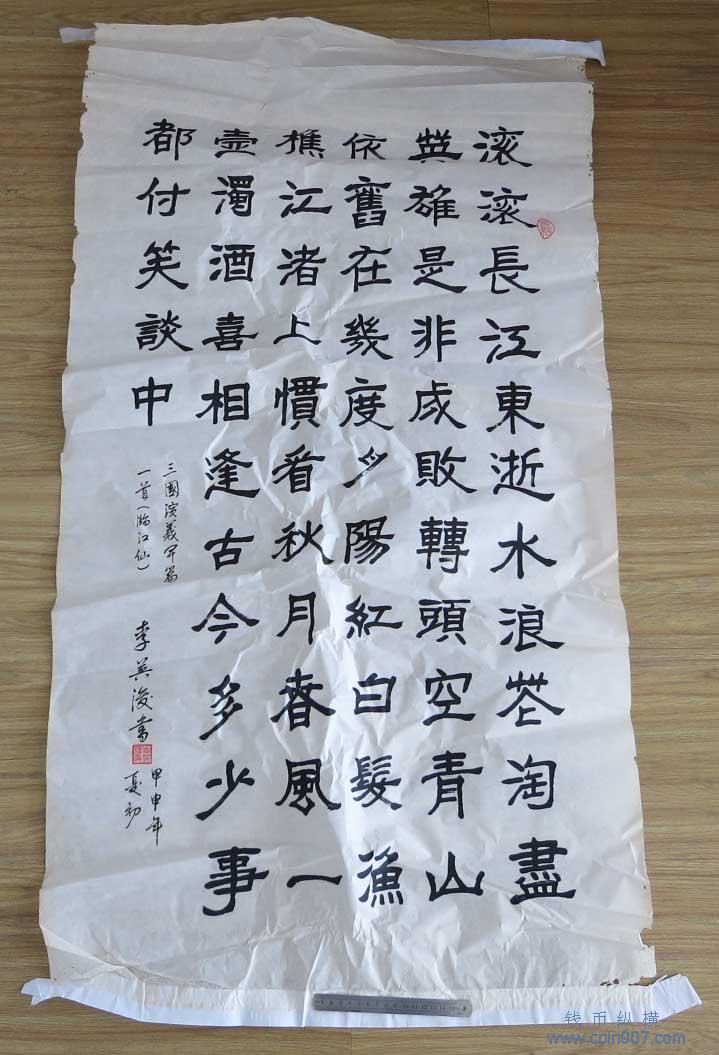 滚滚長江東逝水浪花淘盡
英雄是非成敗轉頭空青山
依舊在幾度夕陽紅白髮漁
樵江渚上慣看秋月春風一
壺濁酒喜相逢古今多少事
都付笑談中
三國演義开篇
一首(临江仙)
李英浚書
甲申年
夏初
钱币纵横
www.coin007.com